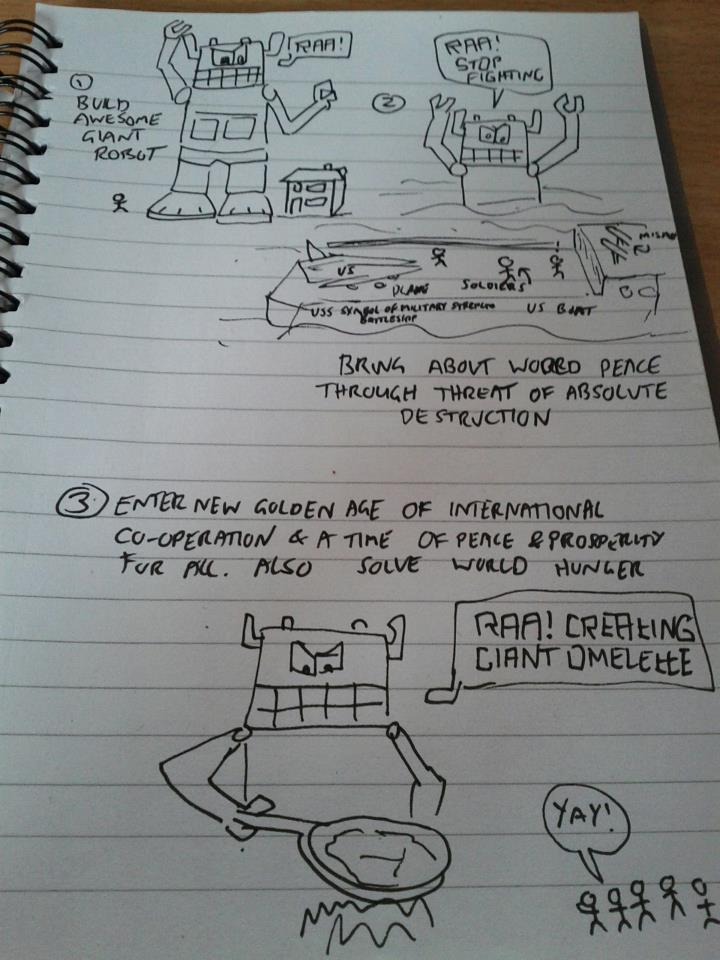 ①
BUILD
AWESOME
GIANT
ROBOT
RAA!
②
RAA!
STOP
FIGHTING
US
PLANE
SOLDIERS
USS SYMBOL OF MILITARY STRENGTH
BATTLESHIP
US BOAT
BRING ABOUT WORLD PEACE
THROUGH THREAT OF ABSOLUTE
DESTRUCTION
③ ENTER NEW GOLDEN AGE OF INTERNATIONAL
CO-OPERATION & A TIME OF PEACE & PROSPERITY
FOR ALL. ALSO SOLVE WORLD HUNGER
RAA! CREATING
GIANT OMELETTE
YAY!